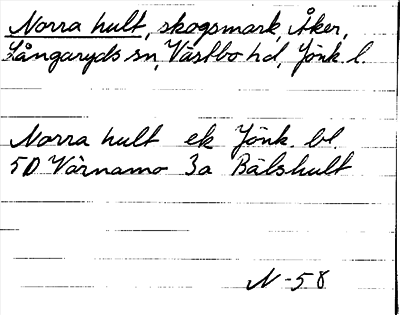 Norra hult, skogsmark, Åker,
Långaryds sn, Västbo hd, Jönk. l.
Norra hult ek Jönk. bl.
5D Värnamo 3a Bälshult
N-58